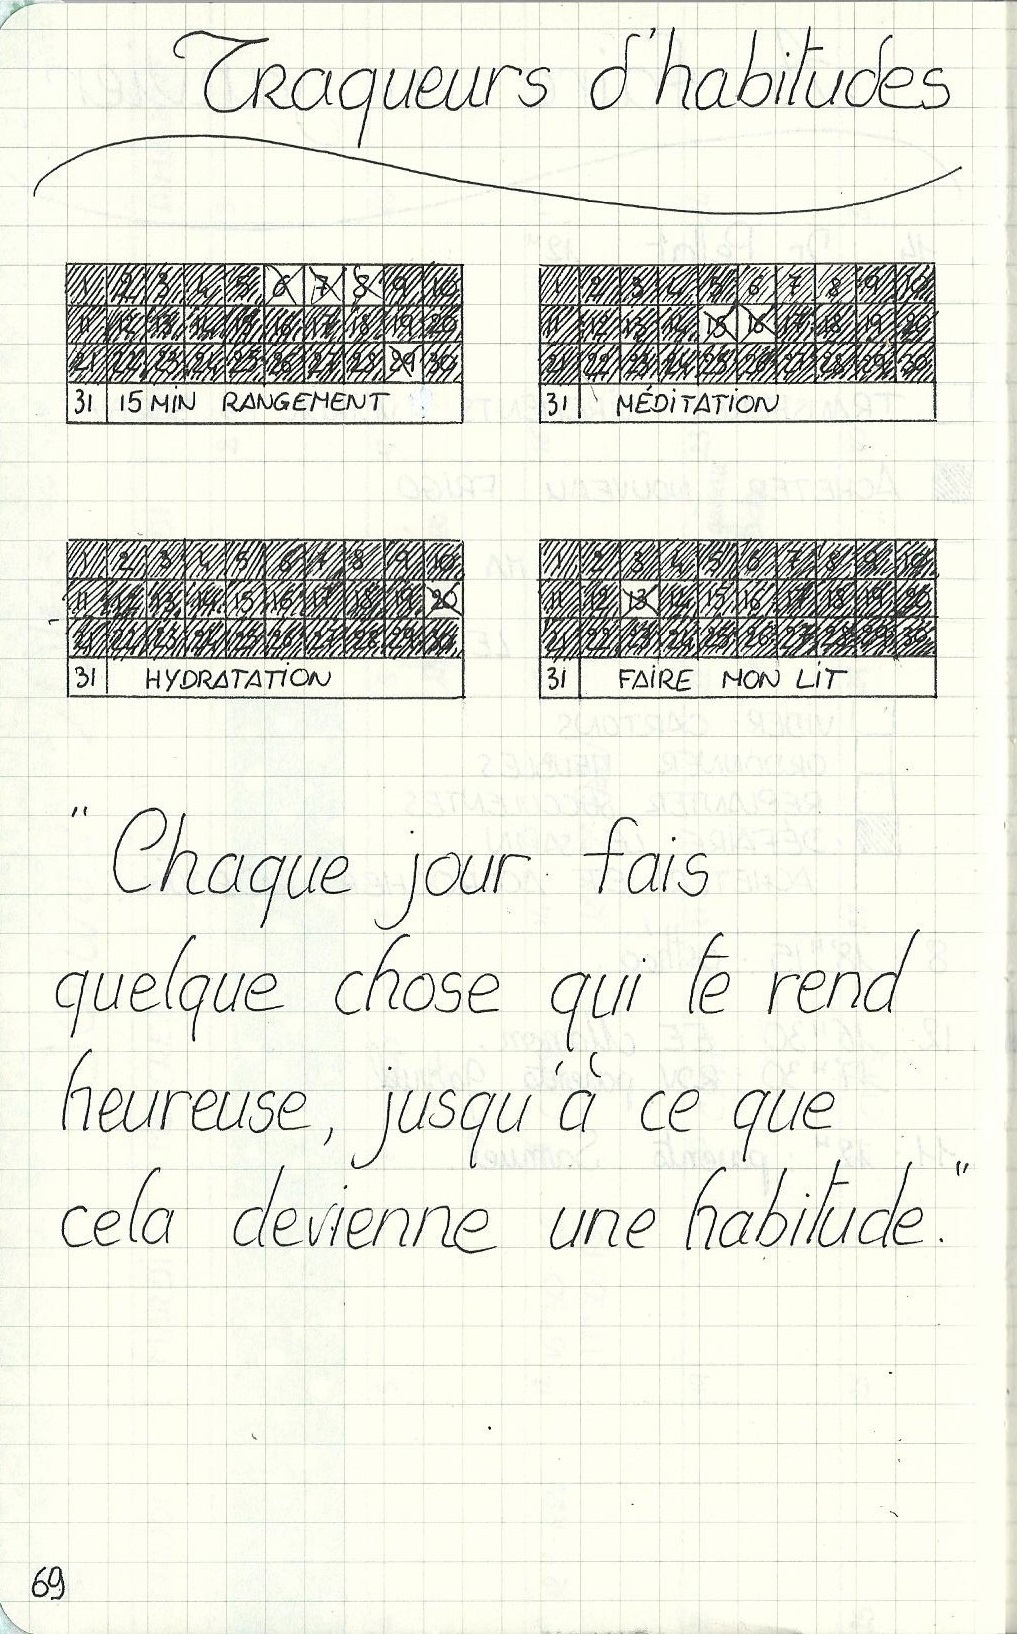 Traqueurs d'habitudes
1 2 3 4 5 6 7 8 9 10
11 12 13 14 15 16 17 18 19 20
21 22 23 24 25 26 27 28 29 30
31 15 MIN RANGEMENT
1 2 3 4 5 6 7 8 9 10
11 12 13 14 15 16 17 18 19 20
21 22 23 24 25 26 27 28 29 30
31 MÉDITATION
1 2 3 4 5 6 7 8 9 10
11 12 13 14 15 16 17 18 19 20
21 22 23 24 25 26 27 28 29 30
31 HYDRATATION
1 2 3 4 5 6 7 8 9 10
11 12 13 14 15 16 17 18 19 20
21 22 23 24 25 26 27 28 29 30
31 FAIRE MON LIT
"Chaque jour fais
quelque chose qui te rend
heureuse, jusqu'à ce que
cela devienne une habitude."
69